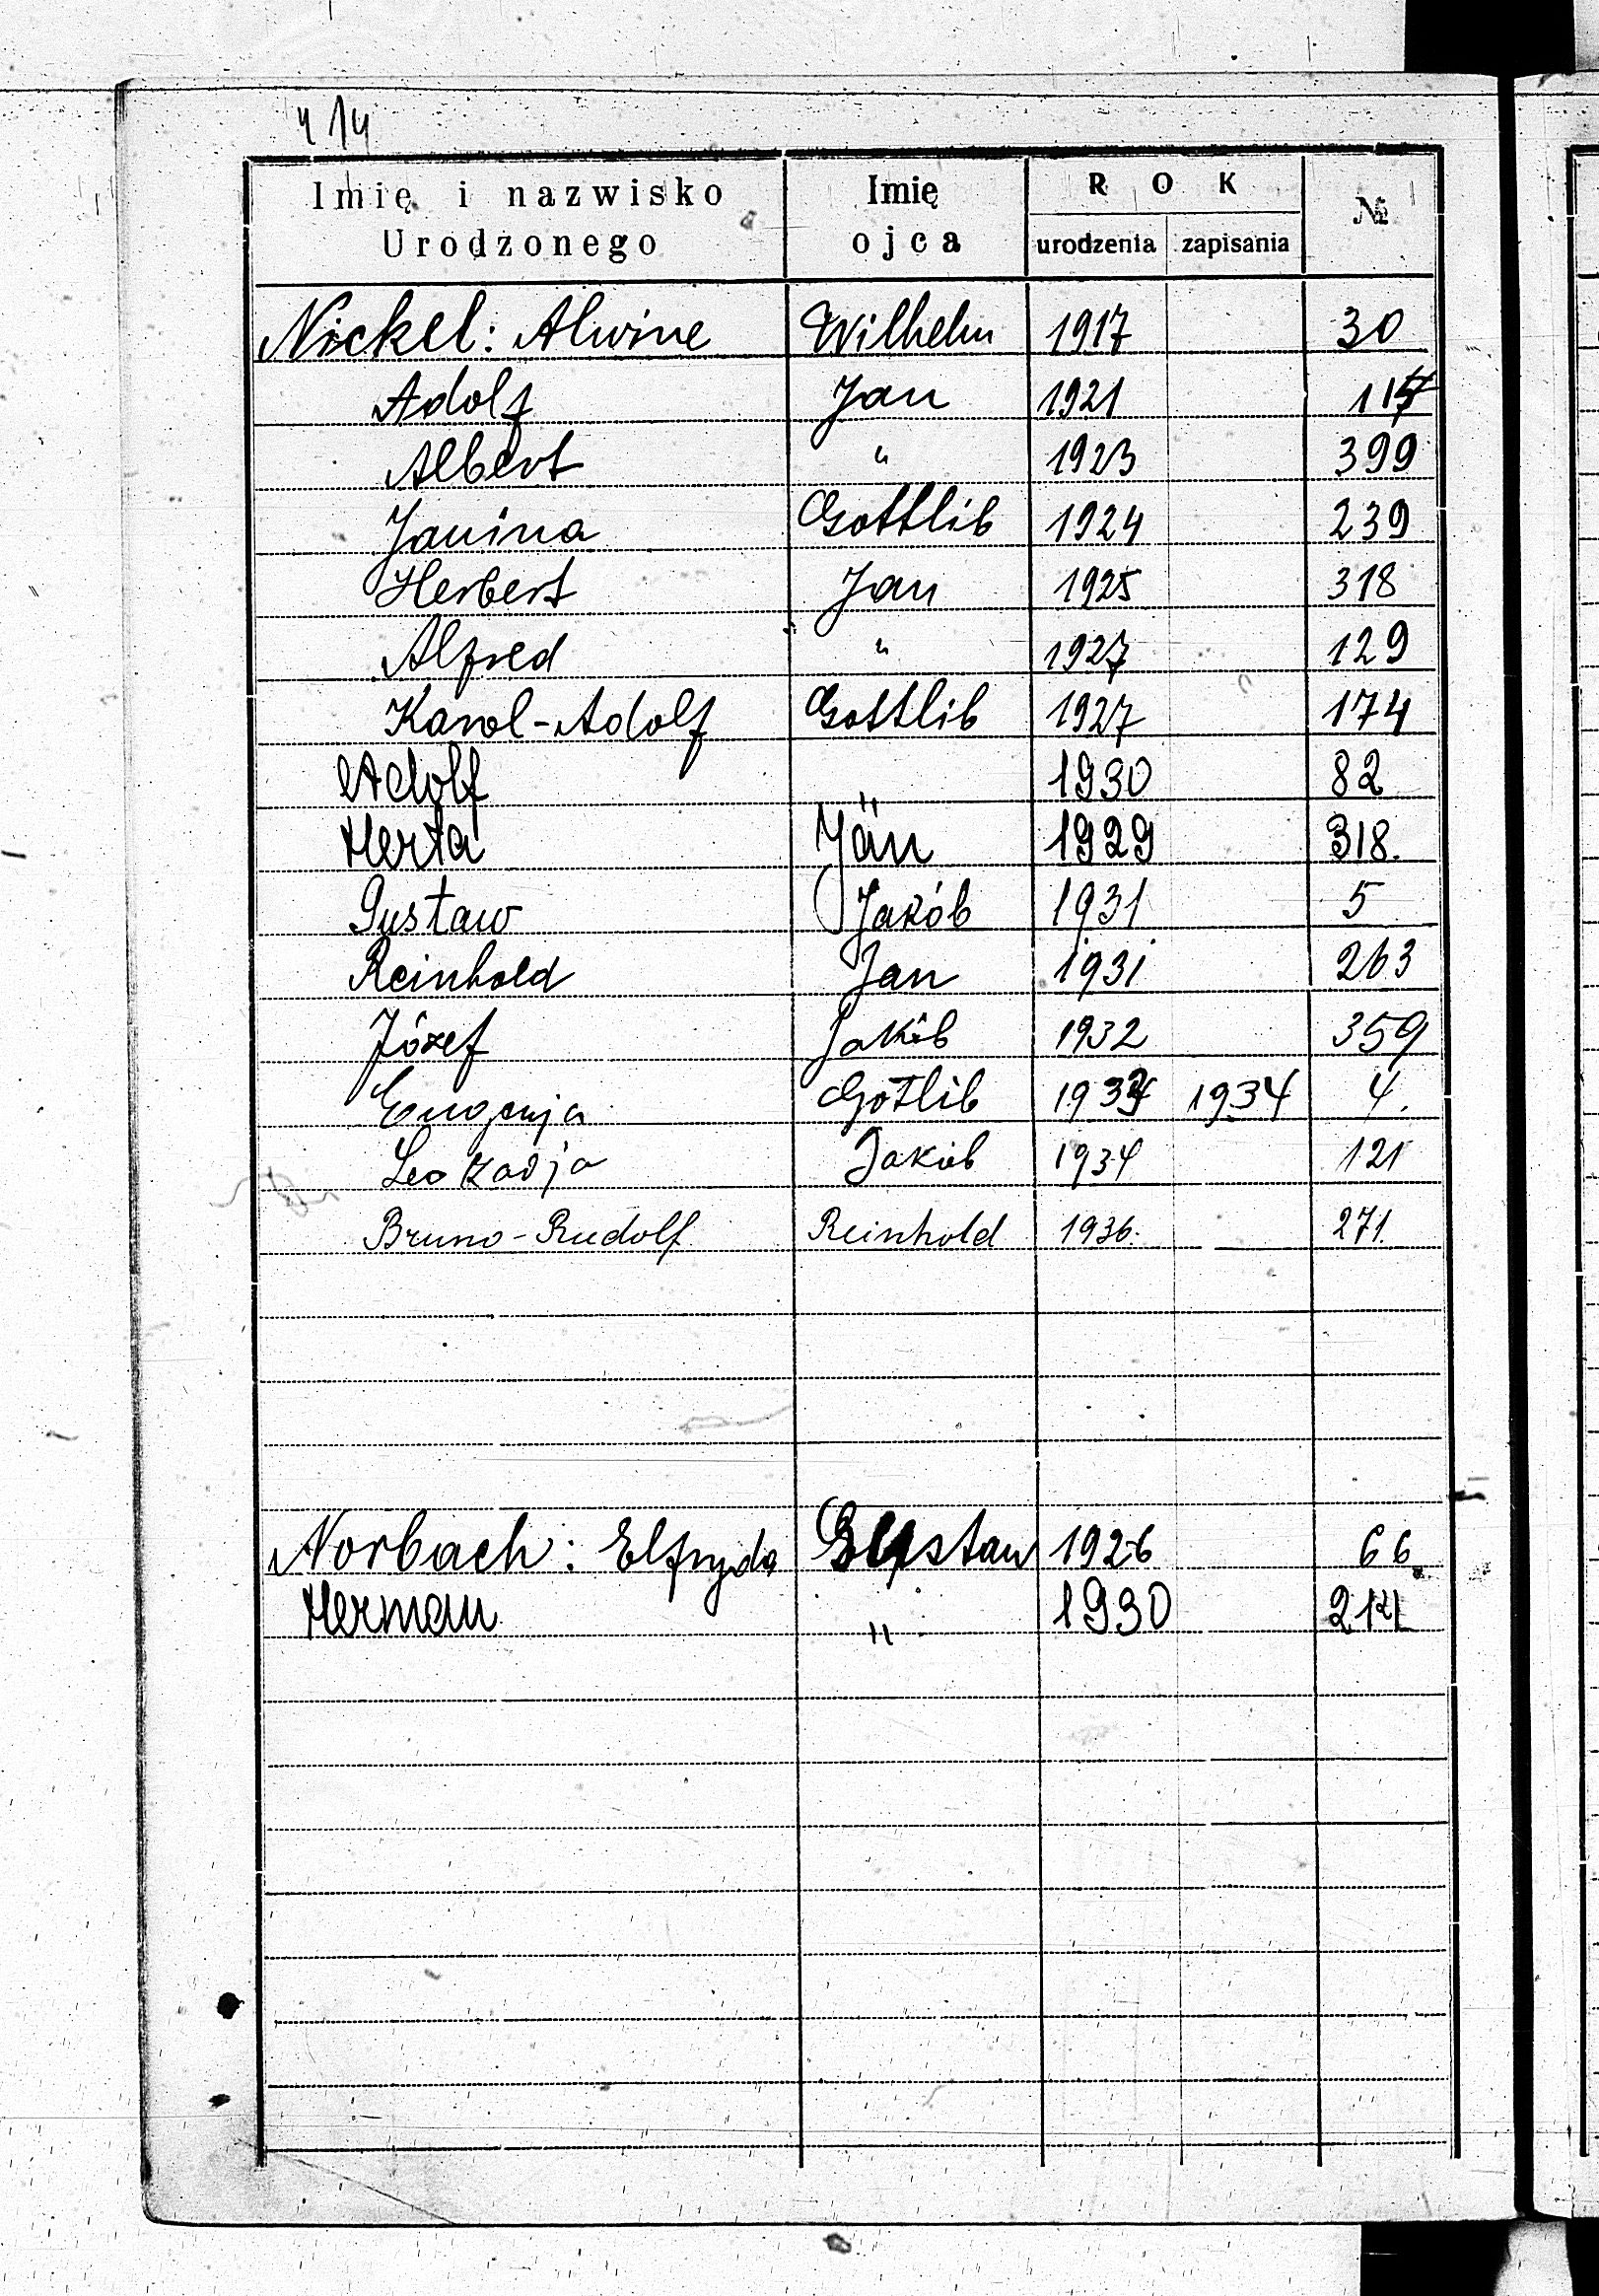 414
Imię i nazwisko Urodzonego Imię ojca ROK urodzenia zapisania №
Nickel: Alwine Wilhelm 1917 30
Adolf Jan 1921
Albert " 1923 399
Janina Gottlib 1924 239
Herbert Jan 1925 318
Alfred " 1927 129
Karol-Adolf Gottlib 1927 174
Adolf " 1930 82
Herta Jan 1929 318.
Gustaw Jakób 1931 5
Reinhold Jan 1931 263
Józef Jakób 1932 359
Eugenja Gotlib 1934 4.
Leokadja Jakób 1934 121
Bruno-Rudolf Reinhold 1936. 271.
Norbach: Elfryda Gustaw 1926 66
Herman " 1930